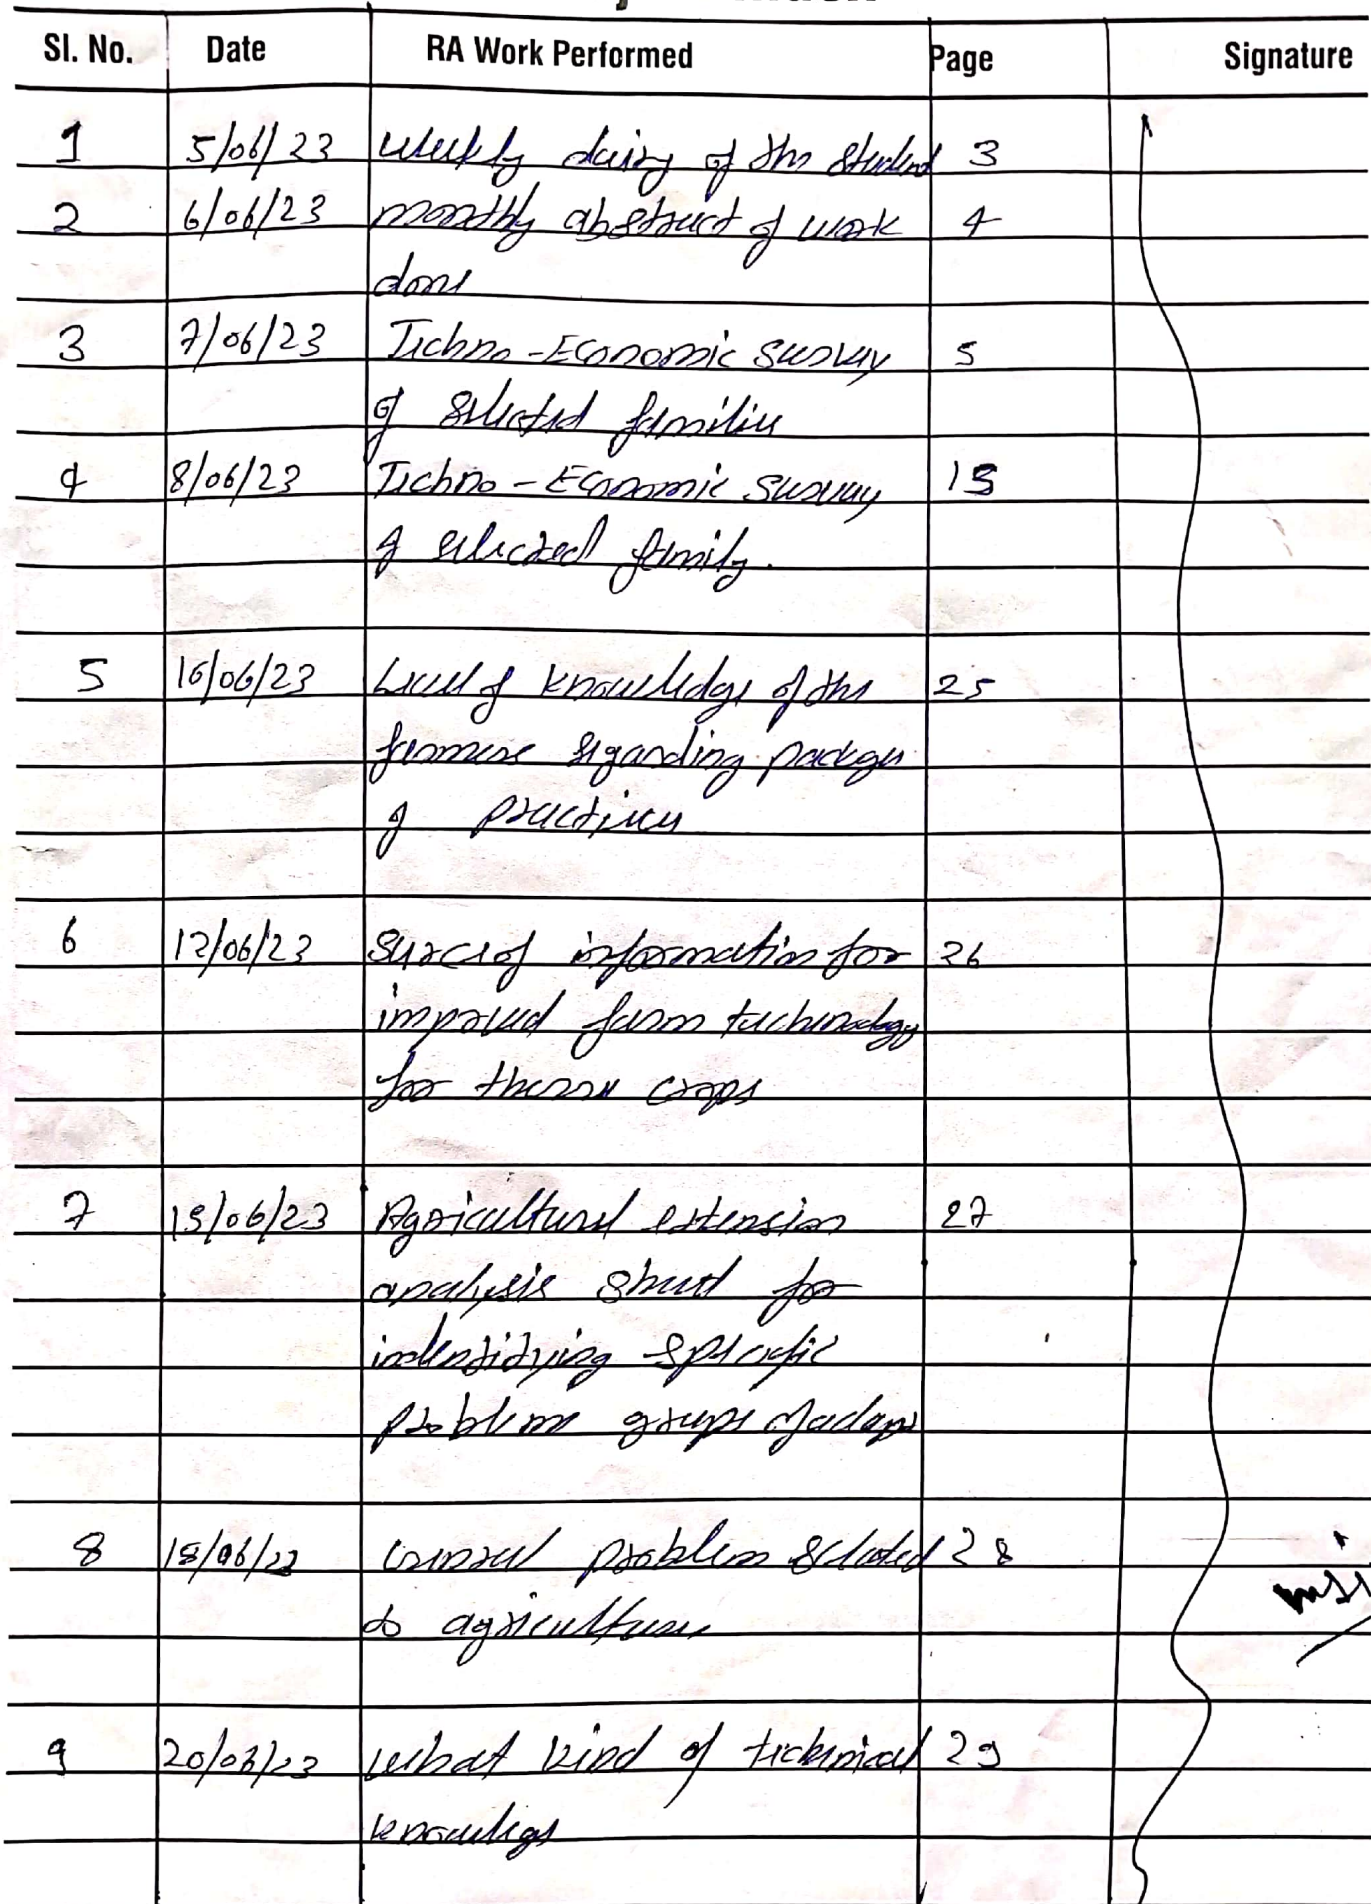 Sl. No. Date RA Work Performed Page Signature
1 5/06/23 weekly dairy of the student 3
2 6/06/23 monthly abstract of work 4
done
3 7/06/23 Techno-Economic survey 5
of selected families
4 8/06/23 Techno-Economic survey 15
of selected family.
5 16/06/23 Level of knowledge of the 25
farmers regarding packages
of practices
6 12/06/23 information for 26
improved farm technology
for crops
7 15/06/23 Agricultural extension 27
analysis for
indentifying specific
problems groups of
8 18/06/23 problem related 28
to agriculture
9 20/06/23 what kind of technical 29